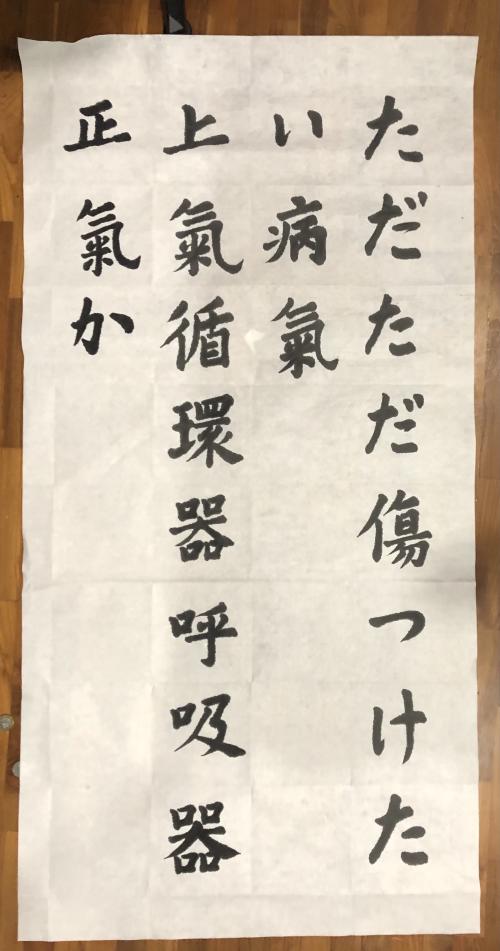 ただただ傷つけた
い病氣
上氣循環器呼吸器
正氣か